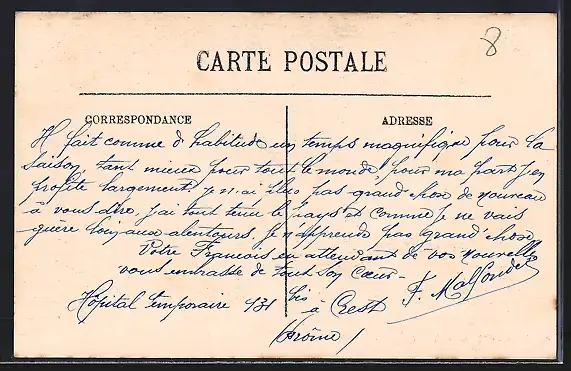 8
CARTE POSTALE
CORRESPONDANCE
ADRESSE
Il fait comme d'habitude un temps magnifique pour la
saison, tant mieux pour tout le monde, pour ma part j'en
profite largement. Je n'ai plus pas grand chose de nouveau
à vous dire, j'ai tout tenu le pays et comme je ne vais
guère loin aux alentours, Je n'apprends pas grand'chose
Votre François en attendant de vos nouvelles
vous embrasse de tout son cœur -
Hôpital temporaire 131 bis à Crest F. Malfondet
(Drôme)